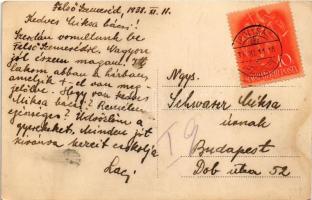 Felső Szemeréd, 1938. XI. 11.
Kedves Miksa bácsi!
Szerdán vonultunk be
Felső Szemerédre. Nagyon
jól érzem magam.
lakom abban a házban,
amelyik +-el van meg-
jelölve. Hogy van kedves
Miksa bácsi? Remélem
egészséges? Üdvözlöm a
gyerekeket, minden jót
kívánva kezeit csókolja
Laci
Ngys.
Schwarz Miksa
úrnak
Budapest
Dob utca 52
T 9
10
MAGYAR KIR. POSTA